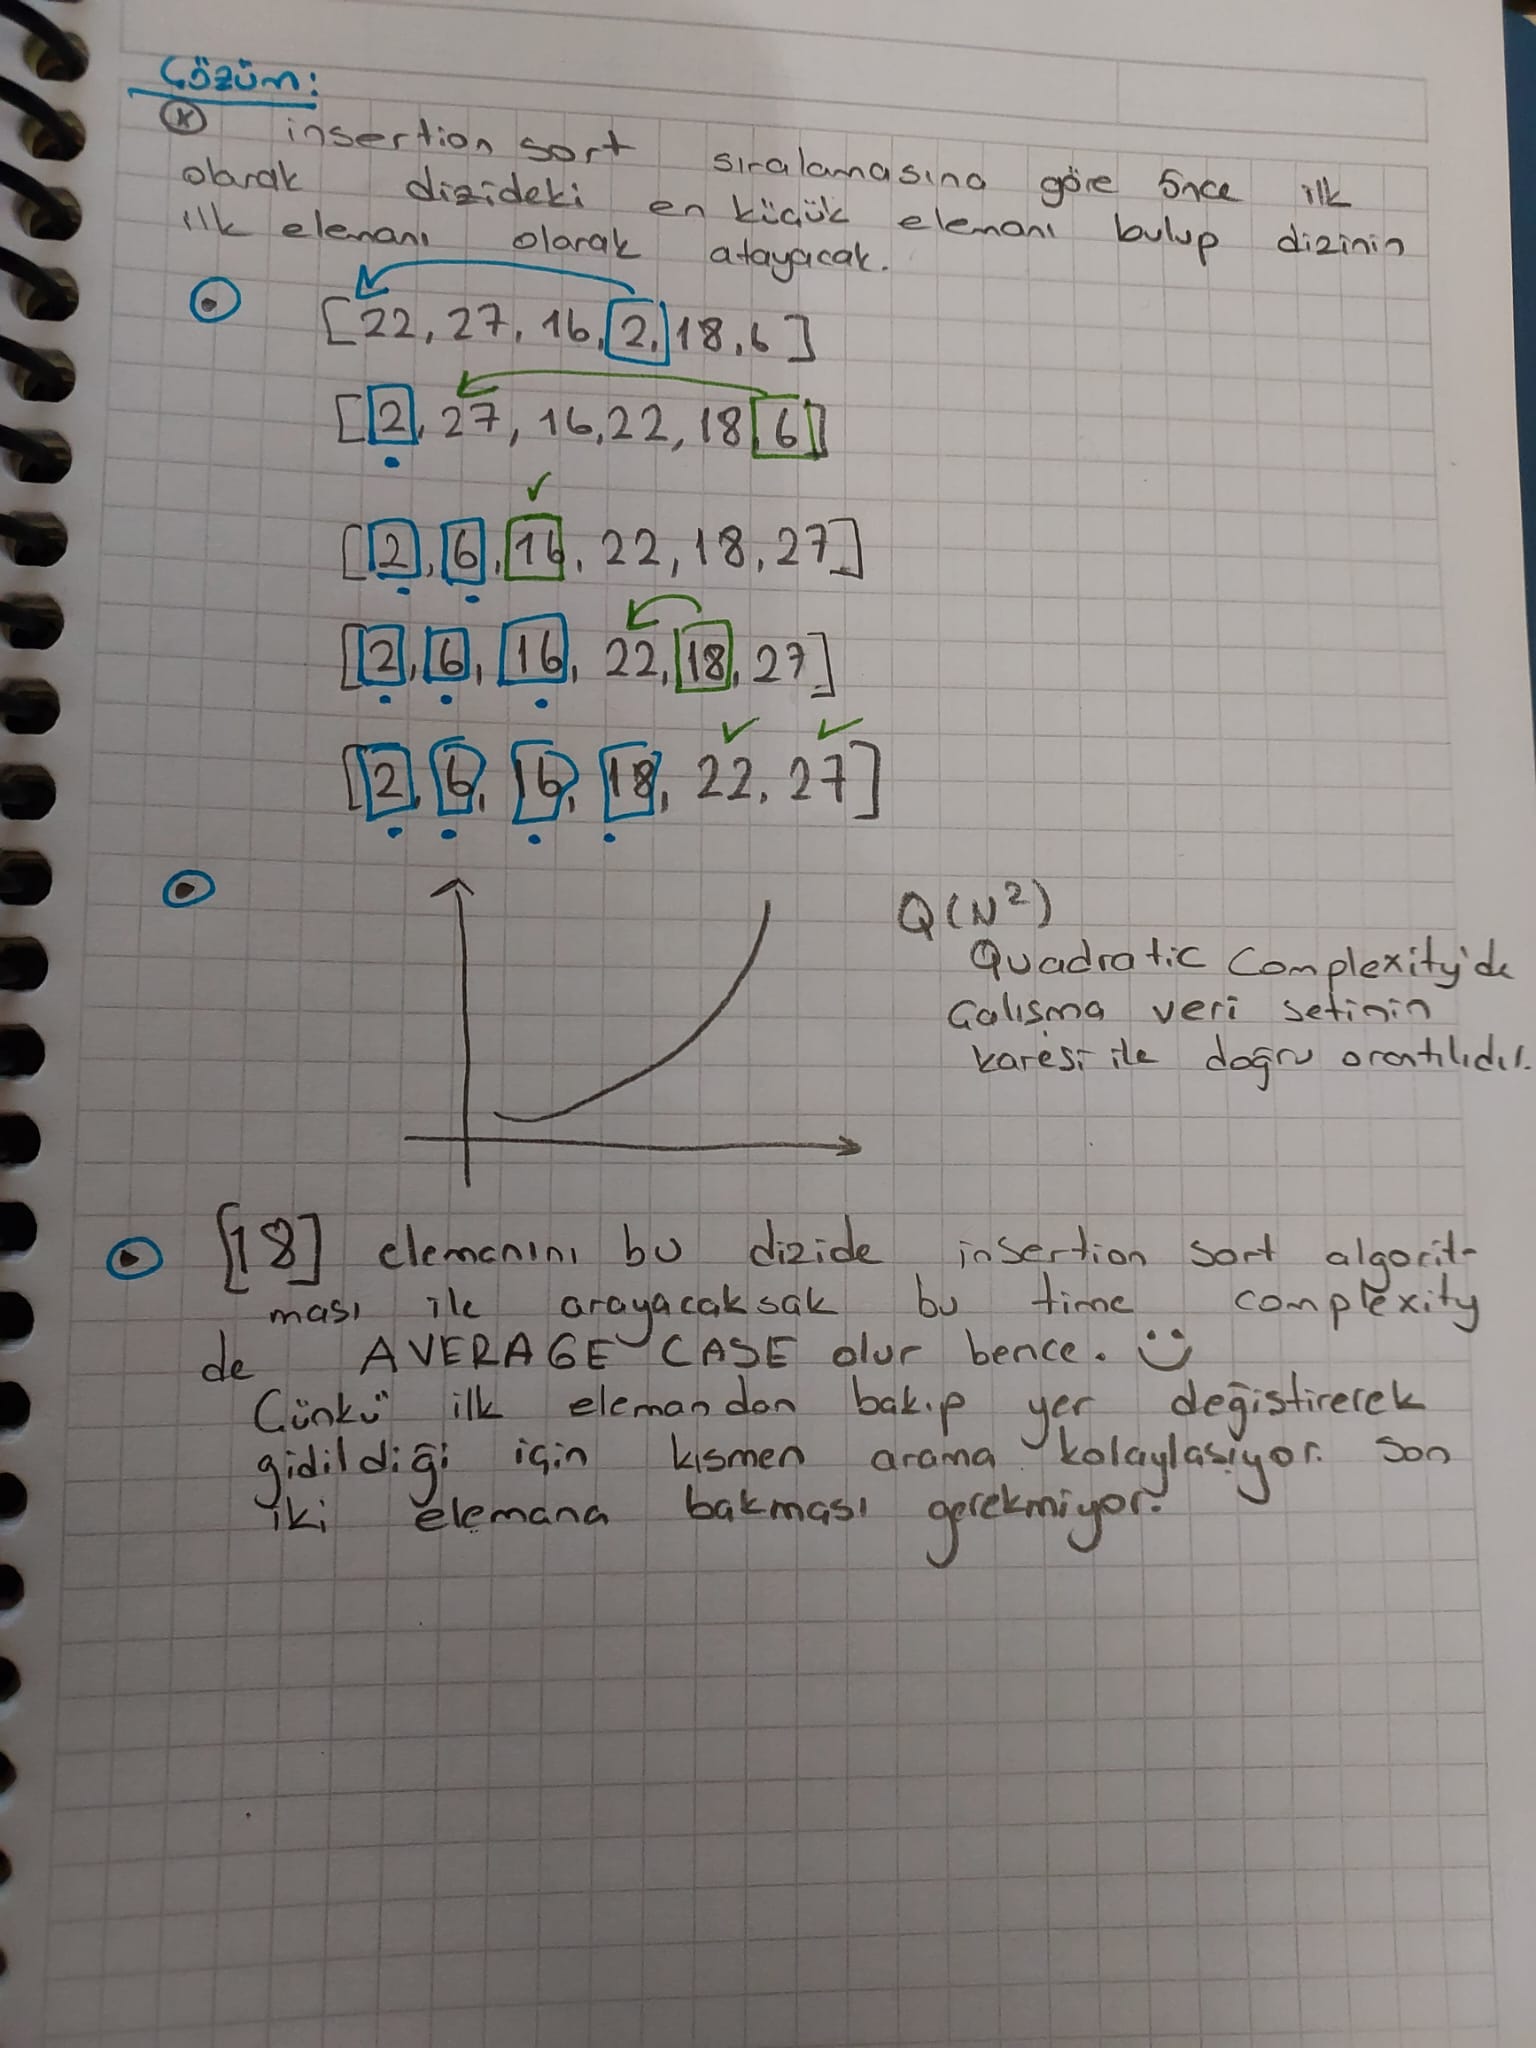 Çözüm:
* insertion sort sıralamasına göre önce ilk
olarak dizideki en küçük elemanı bulup dizinin
ilk elemanı olarak atayacak.
[22, 27, 16, 2, 18, 6]
[2, 27, 16, 22, 18, 6]
[2, 6, 16, 22, 18, 27]
[2, 6, 16, 22, 18, 27]
[2, 6, 16, 18, 22, 27]
Q(N²)
Quadratic Complexity'de
Çalışma veri setinin
karesi ile doğru orantılıdır.
[18] elemanını bu dizide insertion sort algorit-
ması ile arayacaksak bu time complexity
de AVERAGE CASE olur bence. :)
Çünkü ilk elemandan bakıp yer değiştirerek
gidildiği için kısmen arama kolaylaşıyor. Son
iki elemana bakması gerekmiyor.